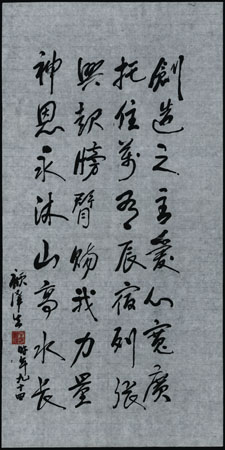 創造之主愛心寬廣
托住萬有辰宿列張
興起膀臂賜我力量
神恩永沐山高水長
時年九十四